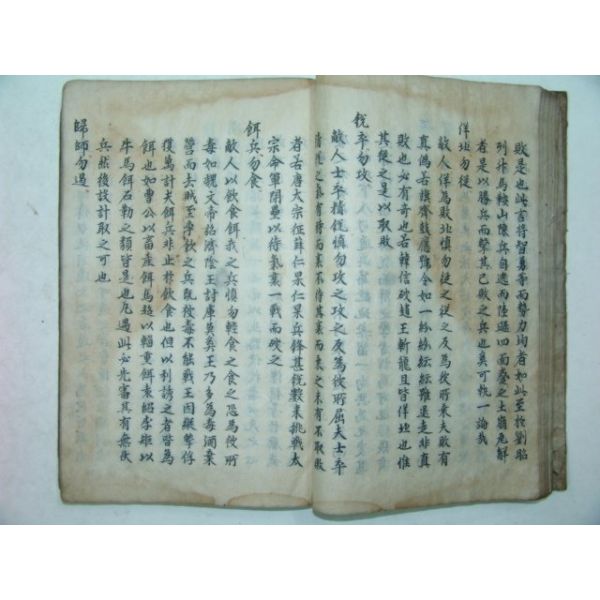 敗是也此言將智勇等而勢力均者如此至於劉昭
列於馬鞍山陳兵自遶而陸遜四面蹙之土崩瓦解
者是以勝兵而擊其已敗之兵也奚可執一論哉
佯北勿從
敵人佯為敗北慎勿從之從之反為彼所乘夫敵有
真偽若旗齊鼓應號令如一紛紛紜紜雖退走非真
敗也必有奇也若韓信破趙王斬龍且皆佯北也惟
其從之是以取敗
銳卒勿攻
敵人士卒精銳慎勿攻之攻之反為彼所屈夫士卒
精銳之氣有時而衰不待其衰而乘之未有不取敗
者若唐太宗征蘇仁杲仁杲兵鋒甚銳數來挑戰太
宗命軍閉壘以待氣衰一戰而破之
餌兵勿食
敵人以飲食餌我之兵慎勿輕食之食之恐為彼所
毒如魏文帝銘濟陰王討庫莫奚王乃多為毒酒棄
營而去賊至爭飲之兵既被毒不能戰王因縱擊俘
獲萬計夫餌兵非止於飲食也但以利誘之者皆為
餌也如曹公以畜産餌馬超以輜重餌袁紹李矩以
牛馬餌石勒之類皆是也凡遇此必先審其有無伏
兵然後設計取之可也
歸師勿遏